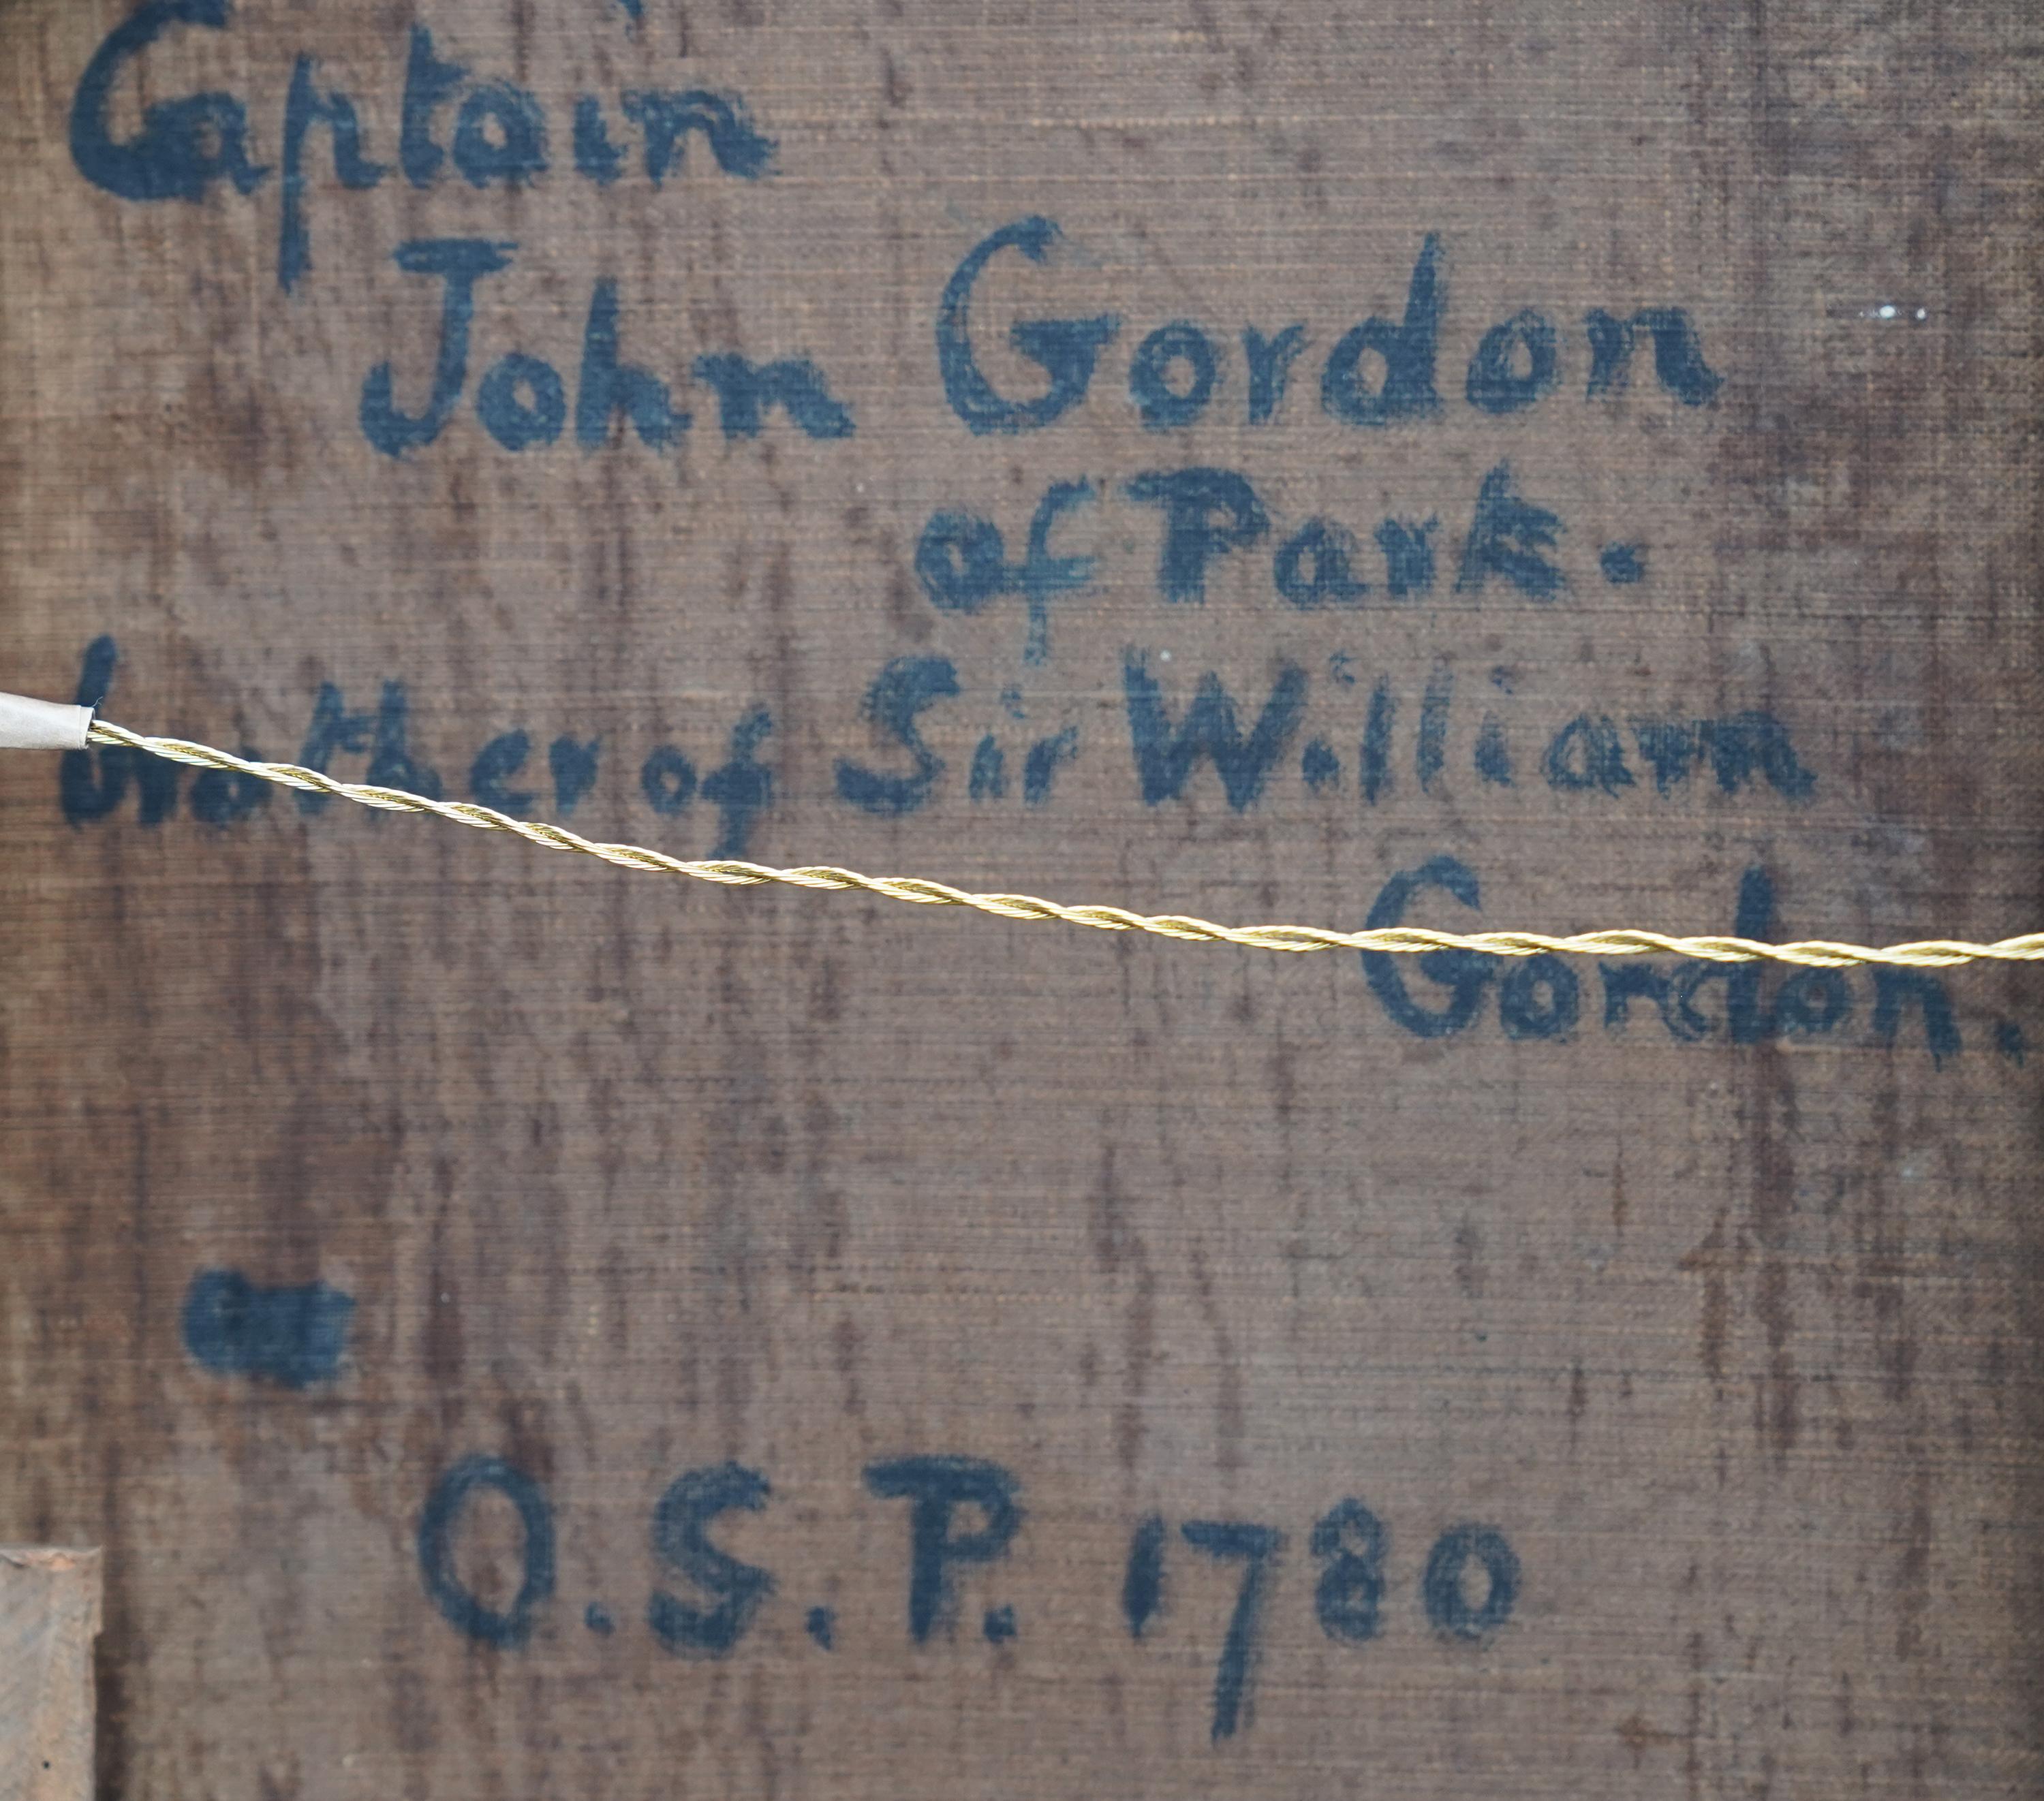 Captain
John Gordon
of Park.
brother of Sir William
Gordon.
O.S.P. 1780